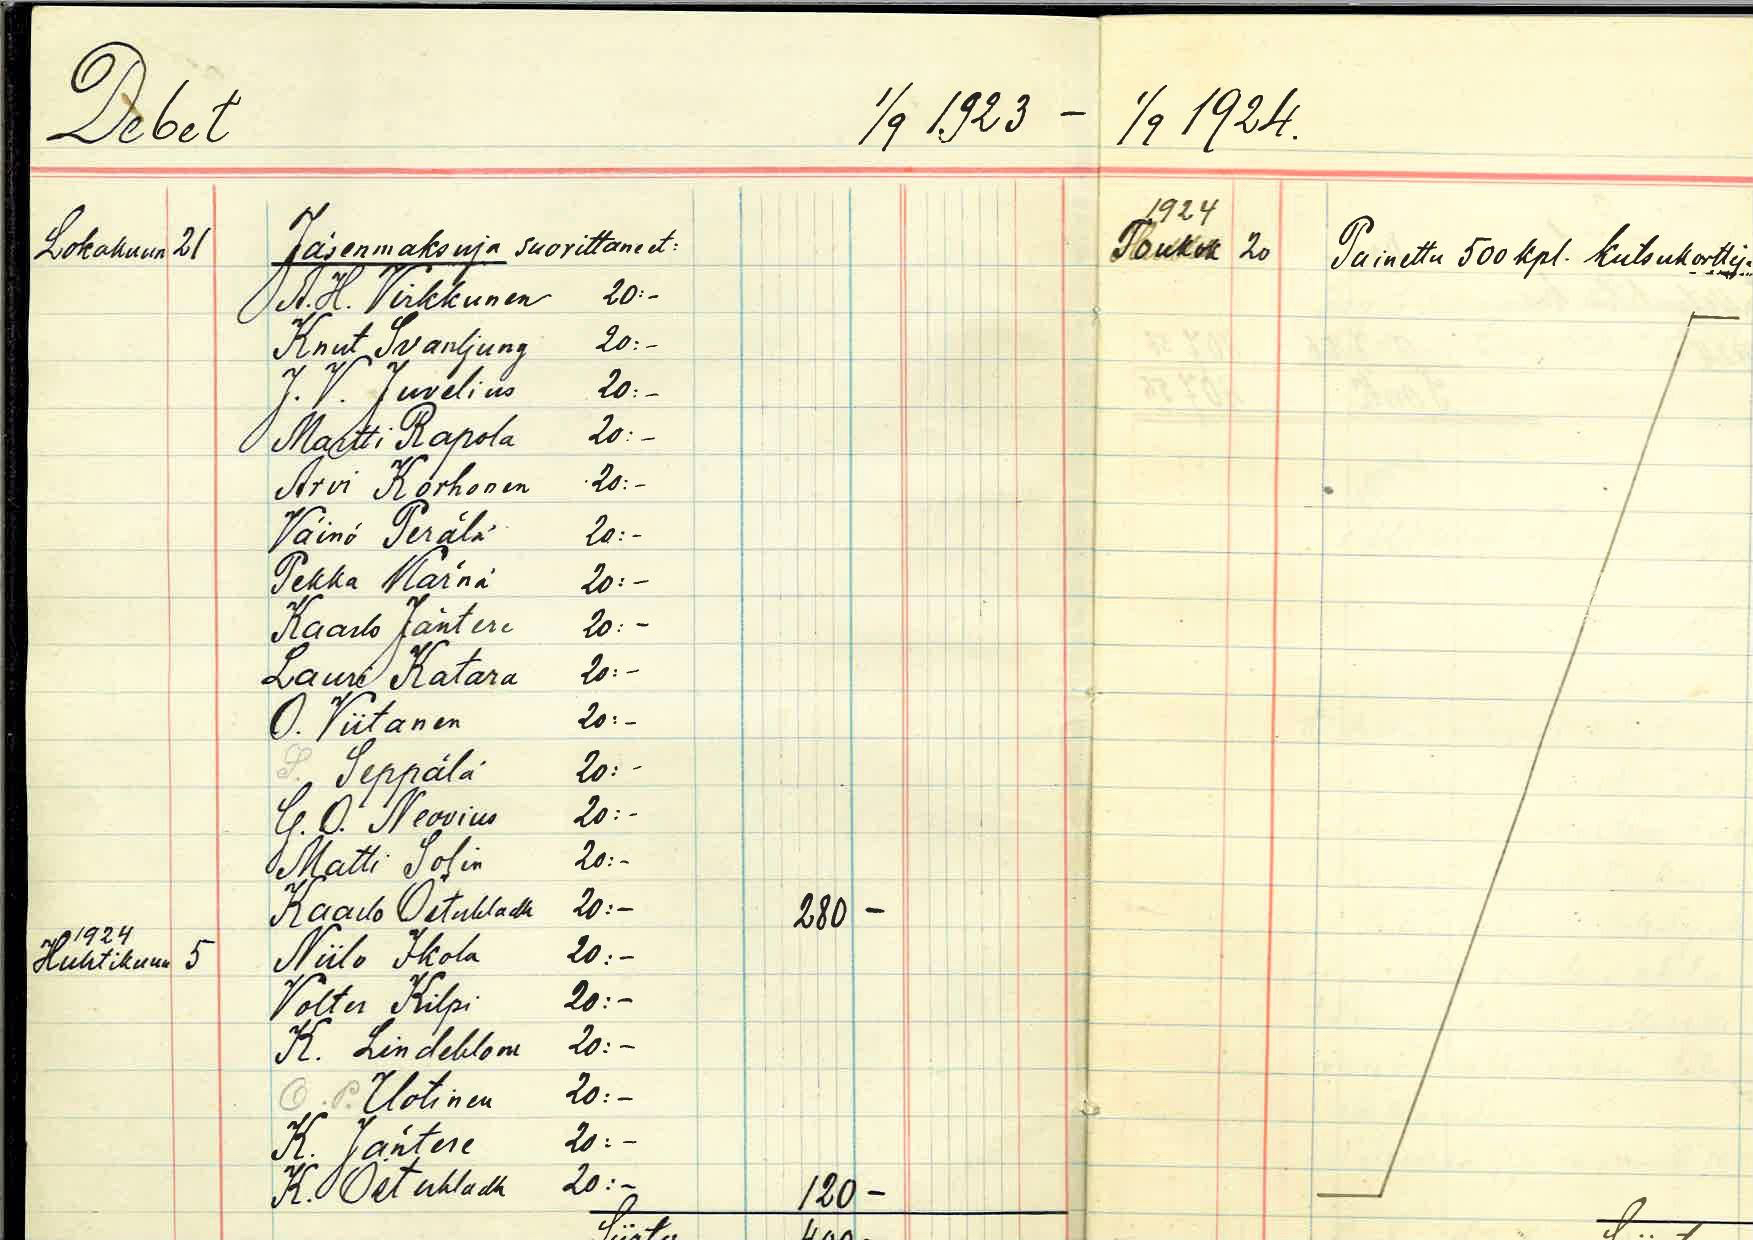 Debet 1/9 1923 - 1/9 1924.
Lokakuun 21 Jäsenmaksuja suorittaneet:
A. H. Virkkunen 20:-
Knut Svanljung 20:-
J. V. Juvelius 20:-
Martti Rapola 20:-
Arvi Korhonen 20:-
Väinö Perälä 20:-
Pekka Kärnä 20:-
Kaarlo Jäntere 20:-
Lauri Katara 20:-
O. Viitanen 20:-
S. Seppälä 20:-
G. O. Neovius 20:-
Matti Solin 20:-
Kaarlo Österbladh 20:- 280 -
1924
Huhtikuun 5 Niilo Ikola 20:-
Volter Kilpi 20:-
K. Lindeblom 20:-
O. P. Ulotinen 20:-
K. Jäntere 20:-
K. Österbladh 20:- 120 -
Siirto 400
1924
Toukok 20 Painettu 500 kpl. kutsukortteja